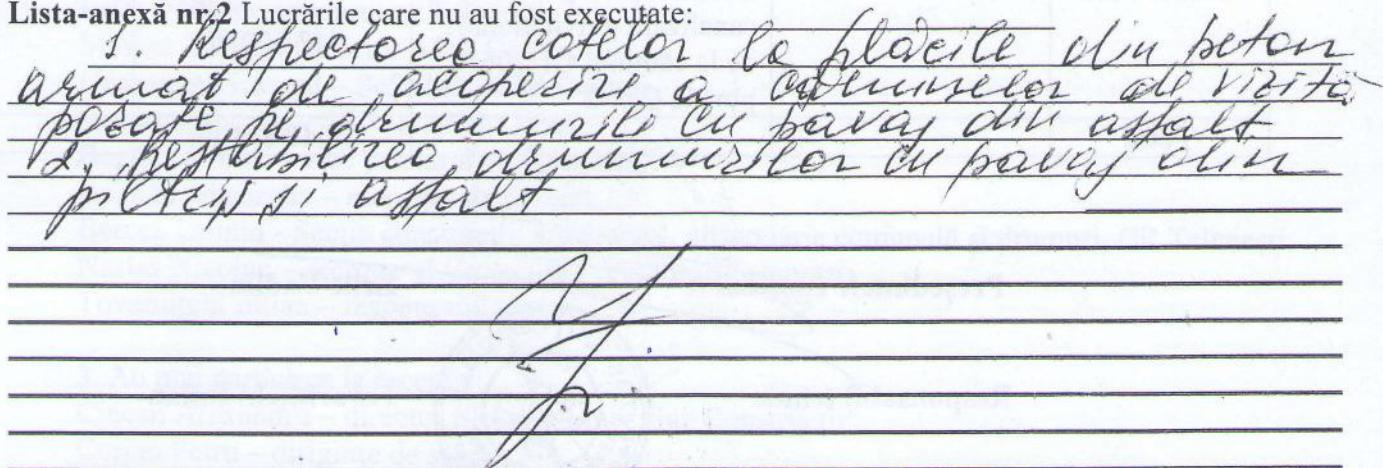 Lista-anexă nr.2 Lucrările care nu au fost executate:
1. Respectarea cotelor la plăcile din beton
armat de acoperire a căminelor de vizită
pozate pe drumurile cu pavaj din asfalt.
2. Restabilirea drumurilor cu pavaj din
pietriș și asfalt